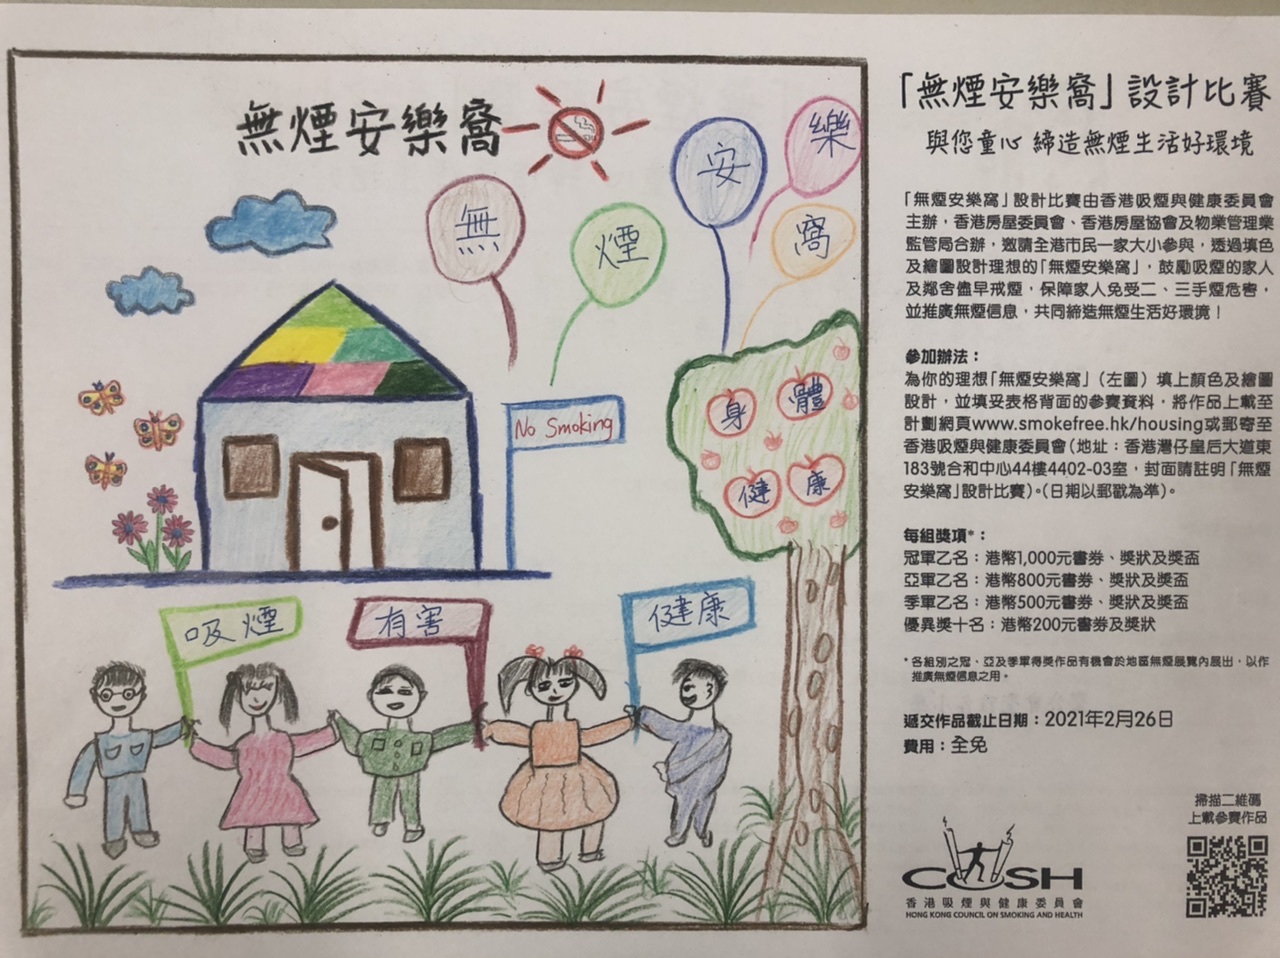 無煙安樂窩
無
煙
安
樂
窩
No Smoking
身
體
健
康
吸煙
有害
健康
「無煙安樂窩」設計比賽
與您童心 締造無煙生活好環境
「無煙安樂窩」設計比賽由香港吸煙與健康委員會
主辦，香港房屋委員會、香港房屋協會及物業管理業
監管局合辦，邀請全港市民一家大小參與，透過填色
及繪圖設計理想的「無煙安樂窩」，鼓勵吸煙的家人
及鄰舍儘早戒煙，保障家人免受二、三手煙危害，
並推廣無煙信息，共同締造無煙生活好環境！
參加辦法：
為你的理想「無煙安樂窩」（左圖）填上顏色及繪圖
設計，並填妥表格背面的參賽資料，將作品上載至
計劃網頁www.smokefree.hk/housing或郵寄至
香港吸煙與健康委員會（地址：香港灣仔皇后大道東
183號合和中心44樓4402-03室，封面請註明「無煙
安樂窩」設計比賽）。（日期以郵戳為準）。
每組獎項*：
冠軍乙名：港幣1,000元書券、獎狀及獎盃
亞軍乙名：港幣800元書券、獎狀及獎盃
季軍乙名：港幣500元書券、獎狀及獎盃
優異獎十名：港幣200元書券及獎狀
*各組別之冠、亞及季軍得獎作品有機會於地區無煙展覽內展出，以作
推廣無煙信息之用。
遞交作品截止日期：2021年2月26日
費用：全免
掃描二維碼
上載參賽作品
COSH
香港吸煙與健康委員會
HONG KONG COUNCIL ON SMOKING AND HEALTH